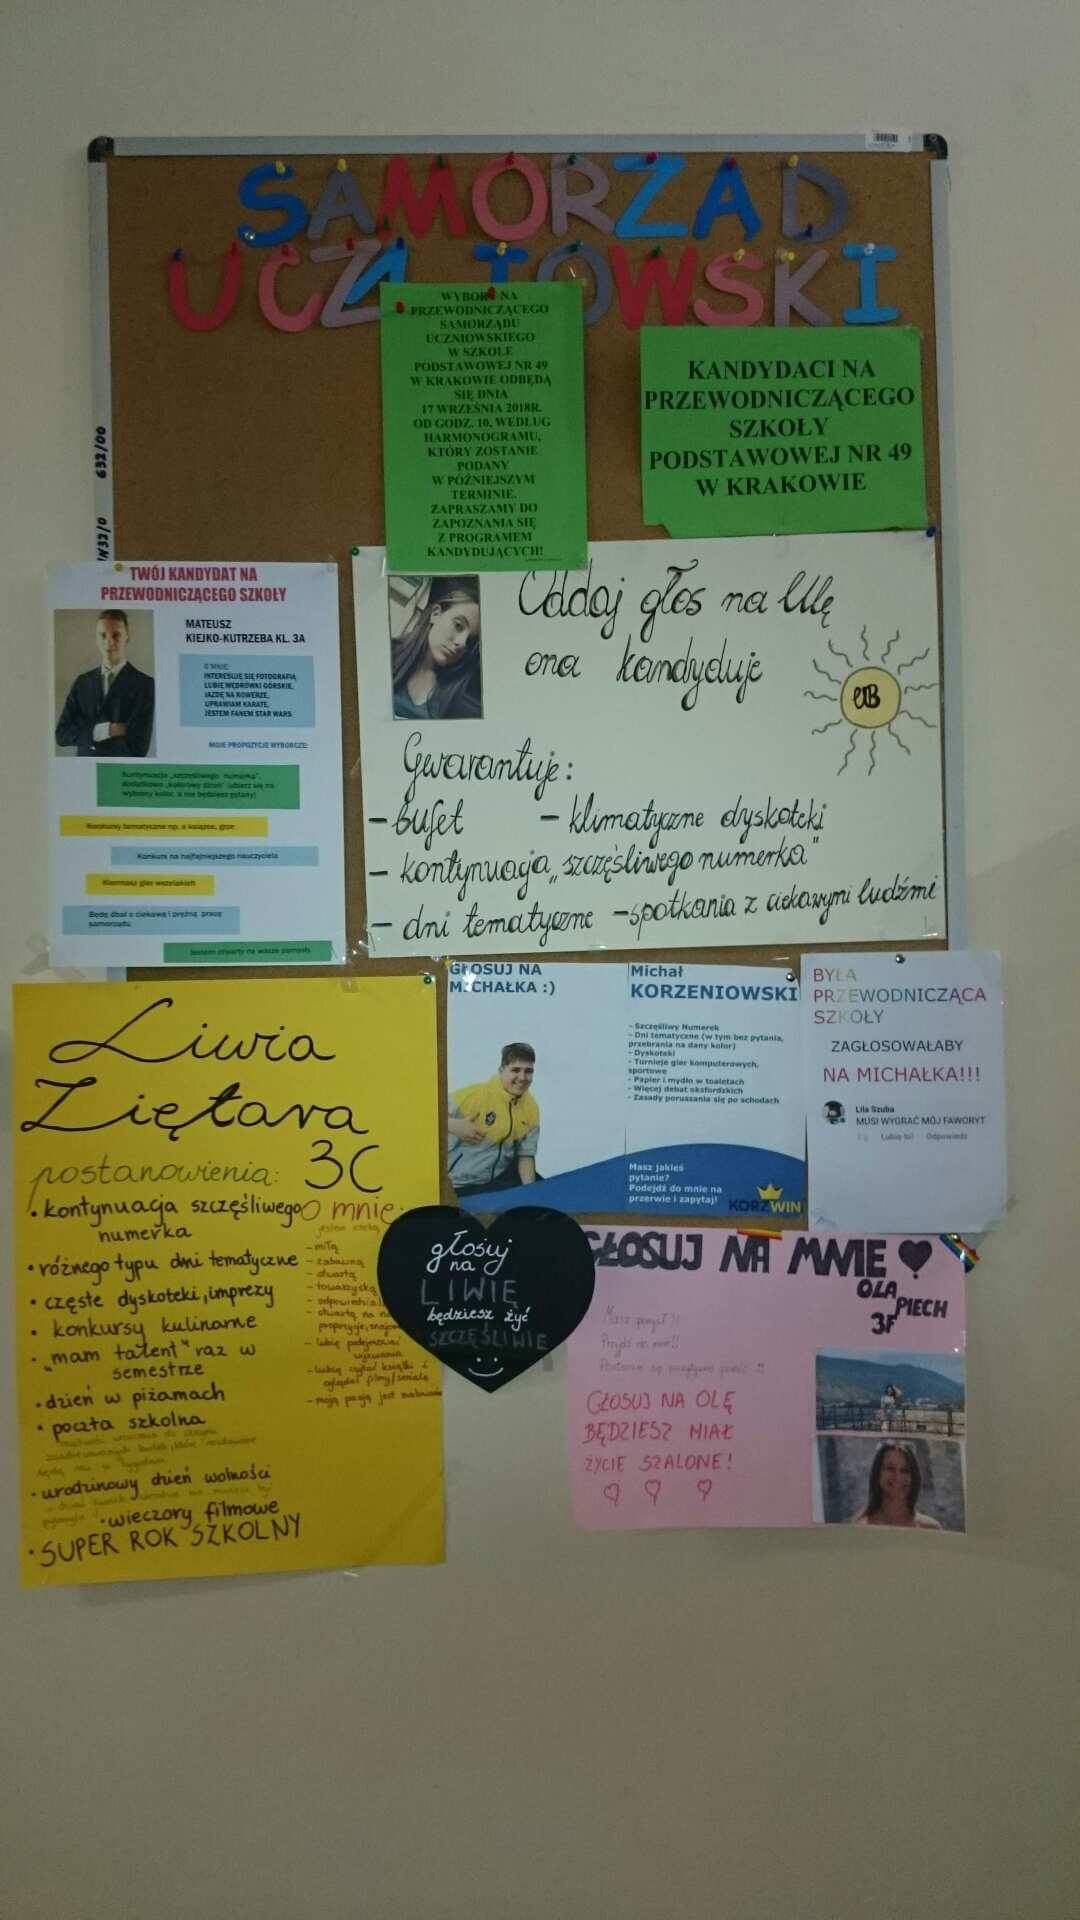 SAMORZĄD
UCZNIOWSKI
WYBORY NA
PRZEWODNICZĄCEGO
SAMORZĄDU
UCZNIOWSKIEGO
W SZKOLE
PODSTAWOWEJ NR 49
W KRAKOWIE ODBĘDĄ
SIĘ DNIA
17 WRZEŚNIA 2018R.
OD GODZ. 10, WEDŁUG
HARMONOGRAMU,
KTÓRY ZOSTANIE
PODANY
W PÓŹNIEJSZYM
TERMINIE.
ZAPRASZAMY DO
ZAPOZNANIA SIĘ
Z PROGRAMEM
KANDYDUJĄCYCH!
KANDYDACI NA
PRZEWODNICZĄCEGO
SZKOŁY
PODSTAWOWEJ NR 49
W KRAKOWIE
632/00
TWÓJ KANDYDAT NA
PRZEWODNICZĄCEGO SZKOŁY
MATEUSZ
KIEJKO-KUTRZEBA KL. 3A
O MNIE:
INTERESUJĘ SIĘ FOTOGRAFIĄ,
LUBIĘ WĘDRÓWKI GÓRSKIE,
JAZDĘ NA ROWERZE,
UPRAWIAM KARATE,
JESTEM FANEM STAR WARS
MOJE PROPOZYCJE WYBORCZE:
Kontynuacja „szczęśliwego numerka",
dodatkowo „kolorowy dzień" (ubierz się na
wybrany kolor, a nie będziesz pytany)
Konkursy tematyczne np. o książce, grze
Konkurs na najfajniejszego nauczyciela
Kiermasz gier wszelakich
Będę dbał o ciekawą i prężną pracę
samorządu
Jestem otwarty na wasze pomysły
Oddaj głos na Ulę
ona kandyduje
UB
Gwarantuje:
- bufet - klimatyczne dyskoteki
- kontynuacja „szczęśliwego numerka"
- dni tematyczne - spotkania z ciekawymi ludźmi
Liwia
Ziętara
3C
postanowienia:
• kontynuacja szczęśliwego
numerka
• różnego typu dni tematyczne
• częste dyskoteki, imprezy
• konkursy kulinarne
• "mam talent" raz w
semestrze
• dzień w piżamach
• poczta szkolna
• urodzinowy dzień wolności
• wieczory filmowe
• SUPER ROK SZKOLNY
O mnie:
- miłą
- zabawną
- otwartą
- towarzyską
- lubię czytać książki i
oglądać filmy/seriale
głosuj
na
LIWIĘ
będziesz żyć
SZCZĘŚLIWIE
GŁOSUJ NA
MICHAŁKA :)
Michał
KORZENIOWSKI
- Szczęśliwy Numerek
- Dni tematyczne (w tym bez pytania,
przebrania na dany kolor)
- Dyskoteki
- Turnieje gier komputerowych,
sportowe
- Papier i mydło w toaletach
- Więcej debat oksfordzkich
- Zasady poruszania się po schodach
Masz jakieś
pytanie?
Podejdź do mnie na
przerwie i zapytaj!
KORZWIN
BYŁA
PRZEWODNICZĄCA
SZKOŁY
ZAGŁOSOWAŁABY
NA MICHAŁKA!!!
Lila Szuba
MUSI WYGRAĆ MÓJ FAWORYT
Lubię to! Odpowiedz
GŁOSUJ NA MNIE
OLA
PIECH
3F
Masz pomysł?!
Przyjdź do mnie!!
GŁOSUJ NA OLĘ
BĘDZIESZ MIAŁ
ŻYCIE SZALONE!